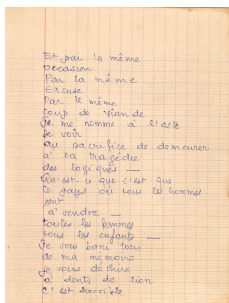 Et par la même
occasion
Par la même
Excuse
Par le même
coup de viande
Je me nomme à l'acte
de voir
au sacrifice de demeurer
à la tragédie
des logiques —
Qu'est ce que c'est que
ce pays où tous les hommes
sont
à vendre —
toutes les femmes
tous les enfants —
Je vous banni tous
de ma mémoire
je vous déchire
à dents de lion
c'est